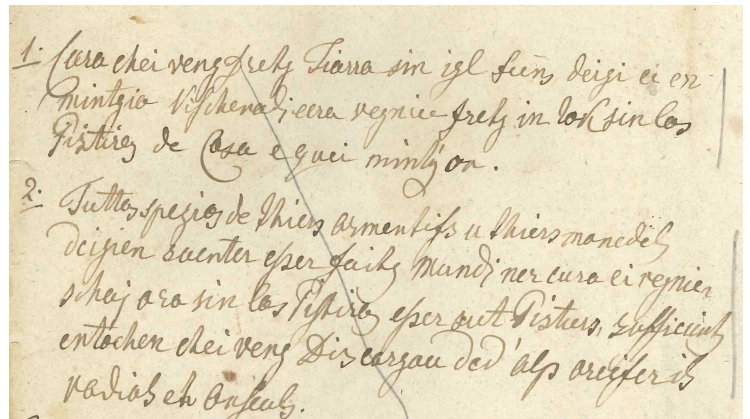 1. Cura chei veng fretg Tiarra sin igl funs deigi ei en
mintgia Vischeneli era vegnir fretg in Tok sin las
Pistiras de Casa e quei mintg' on.
2. Tuttas spezias de thiers armentifs u thiers manedels
deigien suenter esser faitg Mundi ner cura ei vegnien
schai ora sin las Pistiras esser aut Pisturs, sufficients
entochen chei veng Discargau dad' alp
vadials eh anseuls.